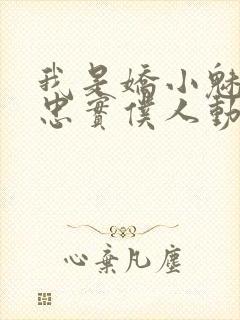 我是嬌小魅
忠實僕人動
心棄凡塵